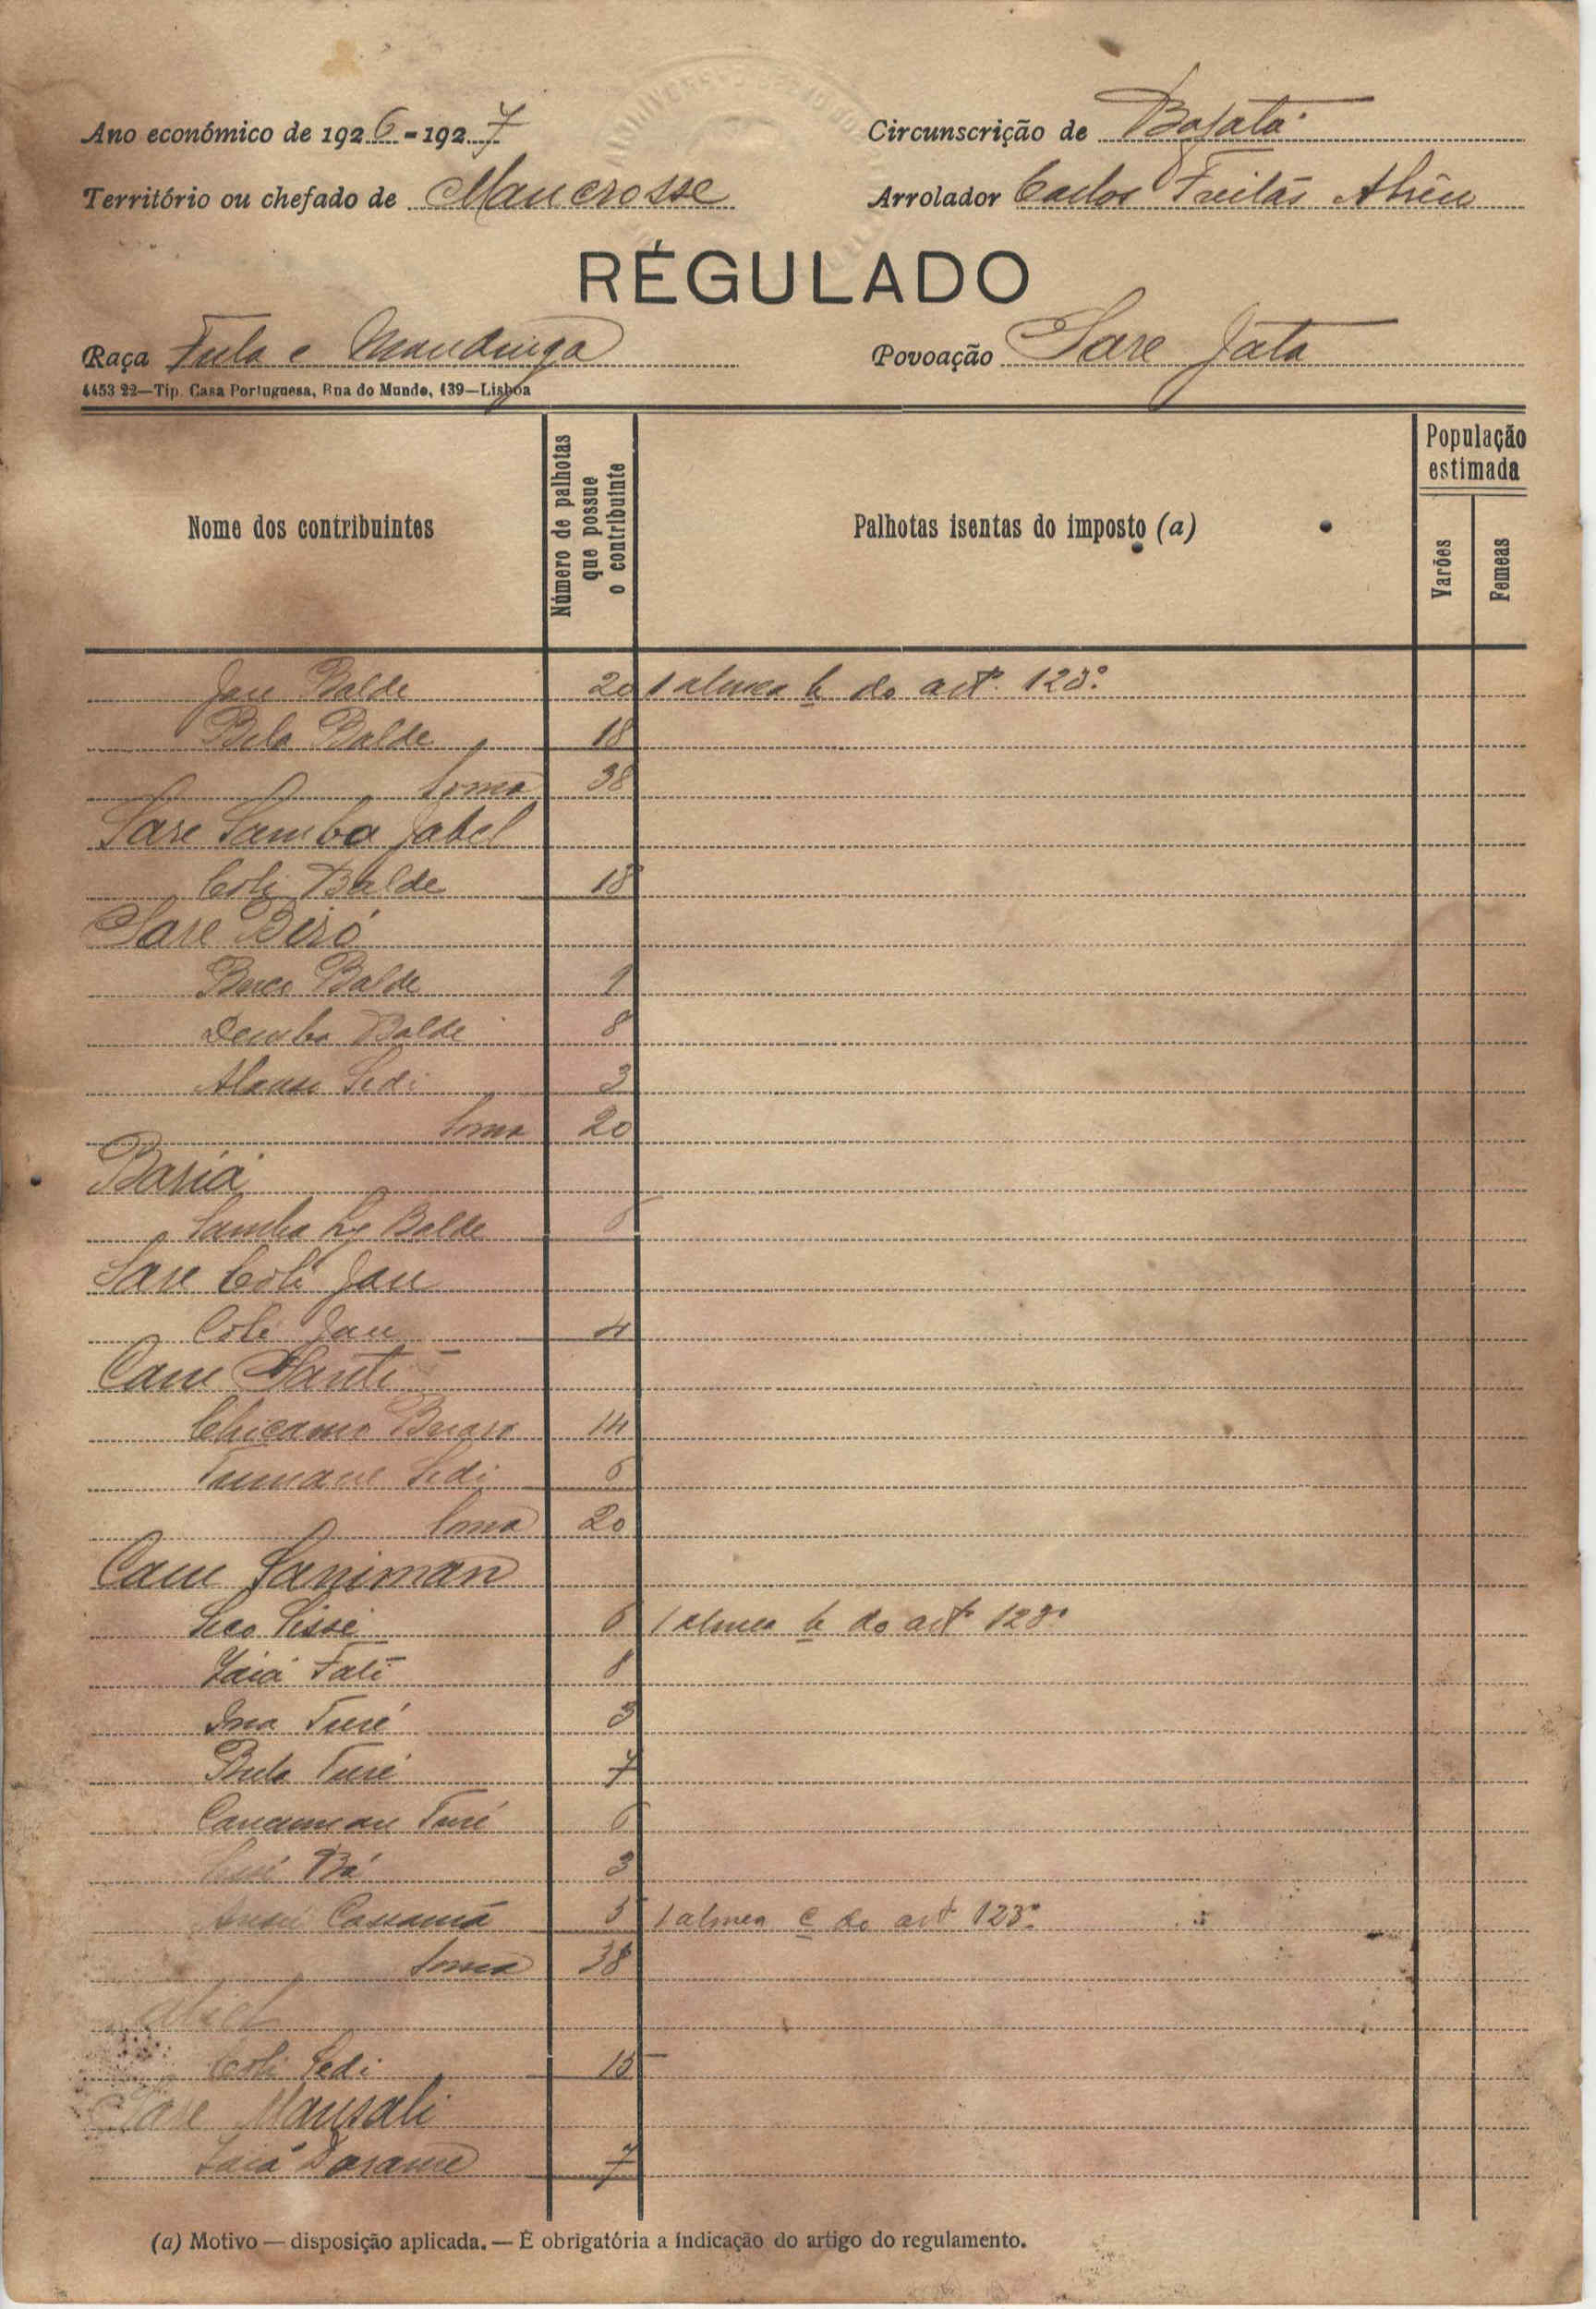 Ano económico de 1926-1927
Circunscrição de Bafatá
Território ou chefado de Mancrosse
Arrolador Carlos Freitas Abreu
RÉGULADO
Raça Fula e Mandinga
Povoação Sare Jata
4453 22—Tip. Casa Portuguesa, Rua do Mundo, 139—Lisboa
Nome dos contribuintes
Número de palhotas que possue o contribuinte
Palhotas isentas do imposto (a)
População estimada
Varões
Femeas
Jau Balde 20 1 alinea b do artº. 123º
Bela Balde 18
Soma 38
Sare Samba Jabel
Coli Balde 18
Sare Biró
Balde
Demba Balde 8
Sedi 3
Soma 20
Samba Balde
Sare Coli Jau
Coli Jau 4
Cam
14
Sedi 6
Soma 20
Cam
Seco Sisse 6 1 alinea b do artº 123º
Jaiá Fati 8
Turé 3
Turé 7
Turé 6
Bá 3
Cassamá 5 1 alinea c do artº 123º
Soma 38
Coli Sedi 15
Sare Mansali
Jaiá 7
(a) Motivo — disposição aplicada. — É obrigatória a indicação do artigo do regulamento.